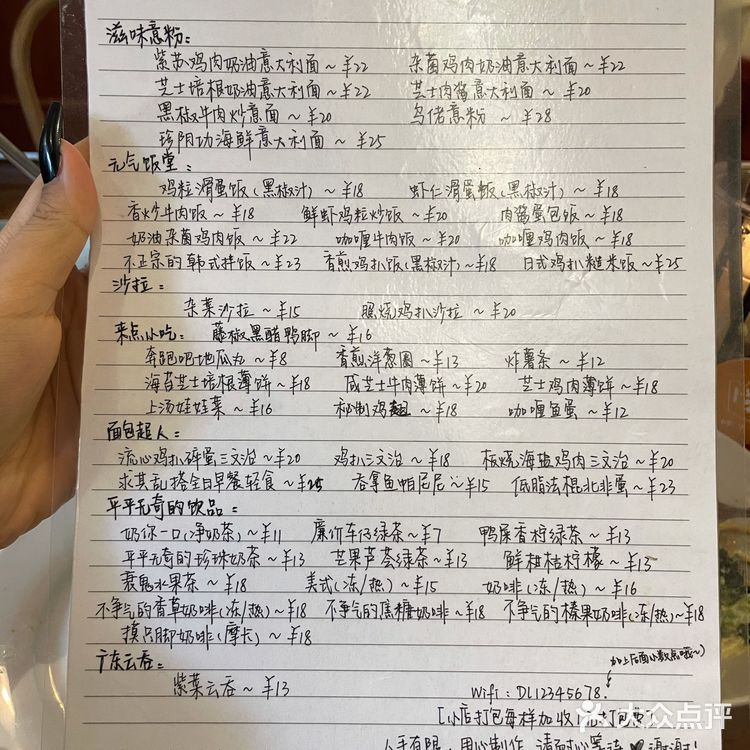 滋味意粉:
紫苏鸡肉奶油意大利面~¥22 杂菌鸡肉奶油意大利面~¥22
芝士培根奶油意大利面~¥22 芝士肉酱意大利面~¥20
黑椒牛肉炒意面~¥20 乌佬意粉~¥28
珍阴功海鲜意大利面~¥25
元气饭堂:
鸡粒滑蛋饭(黑椒汁)~¥18 虾仁滑蛋飯(黑椒汁)~¥18
香炒牛肉饭~¥18 鲜虾鸡粒炒饭~¥20 肉酱蛋包饭~¥18
奶油杂菌鸡肉饭~¥22 咖喱牛肉饭~¥20 咖喱鸡肉饭~¥18
不正宗的韩式拌饭~¥23 香煎鸡扒饭(黑椒汁)~¥18 日式鸡扒糙米饭~¥25
沙拉:
杂菜沙拉~¥15 照烧鸡扒沙拉~¥20
来点小吃: 藤椒黑醋鸭脚~¥16
奔跑吧地瓜丸~¥8 香煎洋葱圈~¥13 炸薯条~¥12
海苔芝士培根薄饼~¥18 咸芝士牛肉薄饼~¥20 芝士鸡肉薄饼~¥18
上汤娃娃菜~¥16 秘制鸡翅~¥18 咖喱鱼蛋~¥12
面包超人:
流心鸡扒碎蛋三文治~¥20 鸡扒三文治~¥18 板烧海盐鸡肉三文治~¥20
求其乱搭全日早餐轻食~¥25 吞拿鱼帕尼尼~¥15 低脂法棍北非蛋~¥23
平平无奇的饮品:
奶你一口(净奶茶)~¥11 廉价车仔绿茶~¥7 鸭屎香柠绿茶~¥13
平平无奇的珍珠奶茶~¥13 芒果芦荟绿茶~¥13 鲜柑桔柠檬~¥13
衰鬼水果茶~¥18 美式(冻/热)~¥15 奶啡(冻/热)~¥16
不争气的香草奶啡(冻/热)~¥18 不争气的焦糖奶啡~¥18 不争气的榛果奶啡(冻/热)~¥18
摸只脚奶啡(摩卡)~¥18
广东云吞:
紫菜云吞~¥13
加上后面小数点哦~)
Wifi:DL12345678.
[小店打包每样加收1元打包费]
人手有限,用心制作,请耐心等待
大众点评